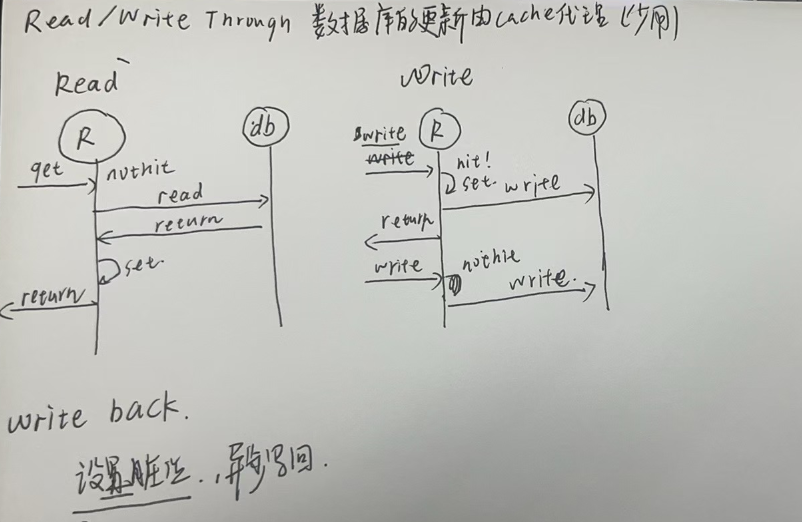 Read/Write Through 数据库的更新由cache代理 (少用)
Read
Write
R
db
get
nothit
read
return
set.
return
R
db
write
write
hit!
set.
write
return
write
nothit
write.
write back.
设置脏位..,异步写回.